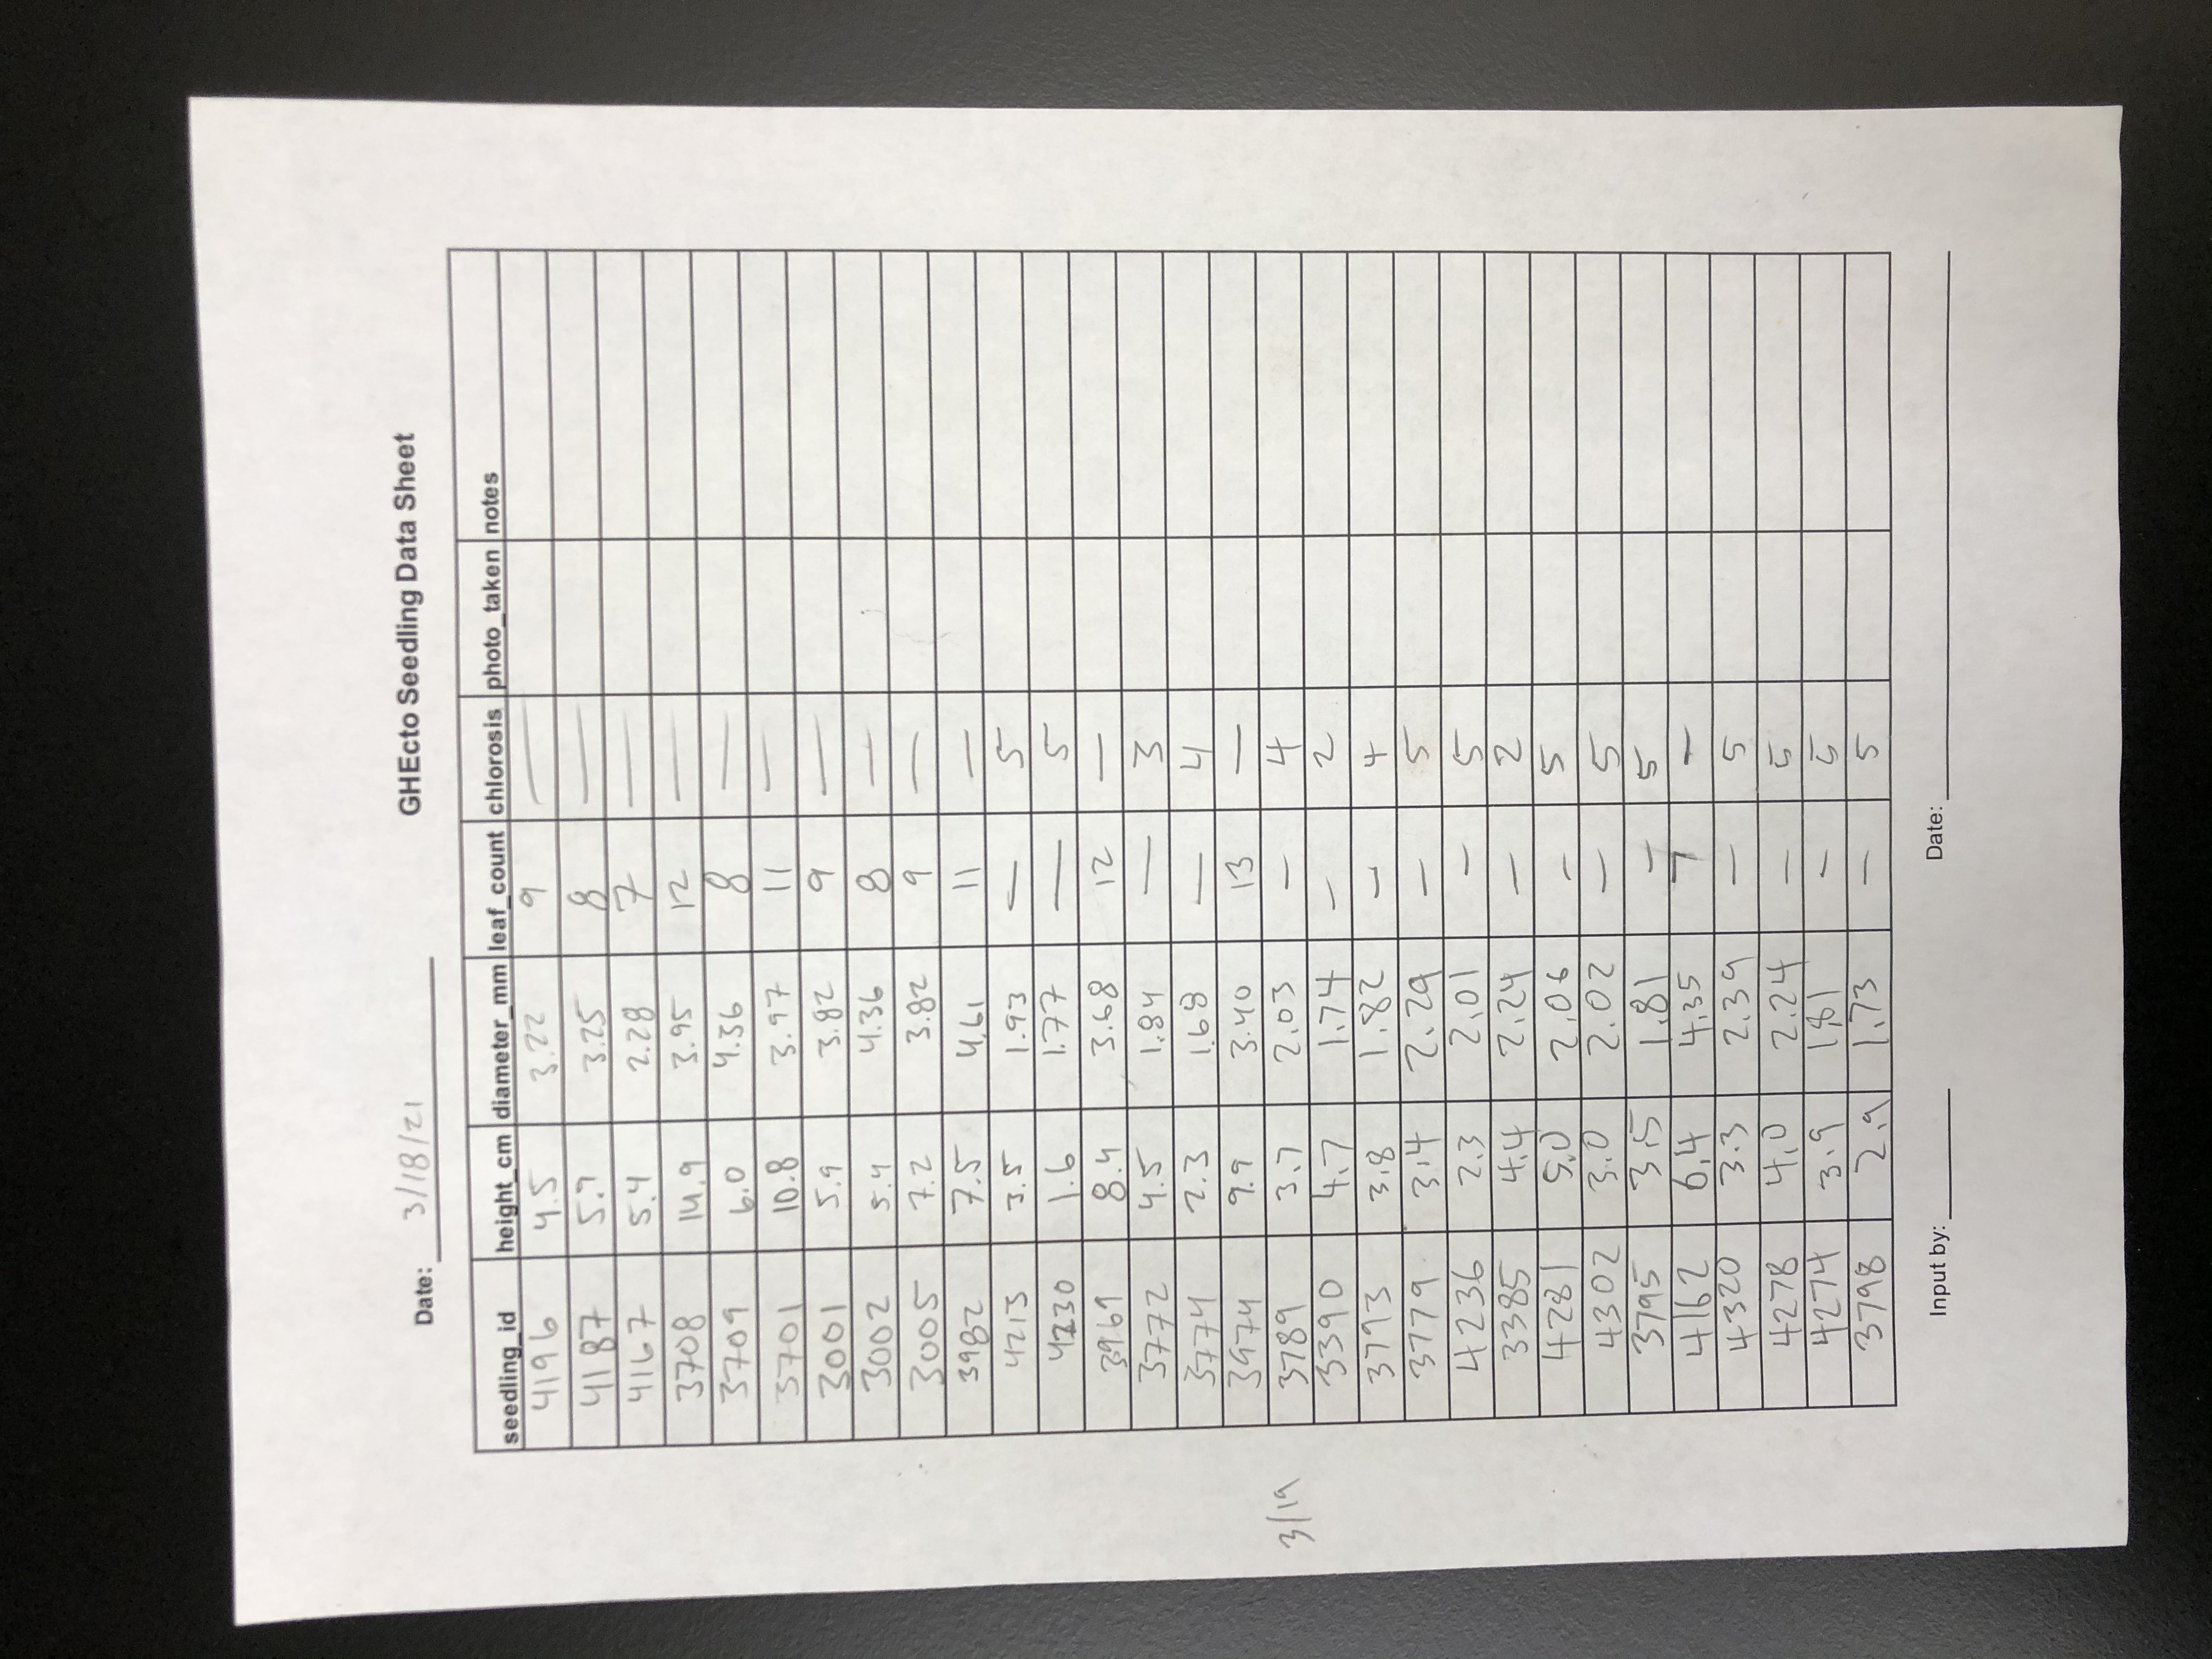 GHEcto Seedling Data Sheet
Date: 3/18/21
seedling_id height_cm diameter_mm leaf_count chlorosis photo_taken notes
4196 4.5 3.22 9 —
4187 5.9 3.25 8 —
4167 5.4 2.28 7 —
3708 14.9 3.95 12 —
3709 6.0 4.36 8 —
3701 10.8 3.97 11 —
3001 5.9 3.82 9 —
3002 5.4 4.36 8 —
3005 7.2 3.82 9 —
3982 7.5 4.61 11 —
4213 3.5 1.93 — 5
4230 1.6 1.77 — 5
3969 8.4 3.68 12 —
3772 4.5 1.84 — 3
3774 2.3 1.68 — 4
3974 9.9 3.40 13 —
3/19 3789 3.7 2.03 — 4
3390 4.7 1.74 — 2
3793 3.8 1.82 — 4
3779 3.4 2.29 — 5
4236 2.3 2.01 — 5
3385 4.4 2.24 — 2
4281 5.0 2.06 — 5
4302 3.0 2.02 — 5
3795 3.5 1.81 — 5
4162 6.4 4.35 7 —
4320 3.3 2.39 — 5
4278 4.0 2.24 — 5
4274 3.9 1.81 — 5
3798 2.9 1.73 — 5
Input by: Date: